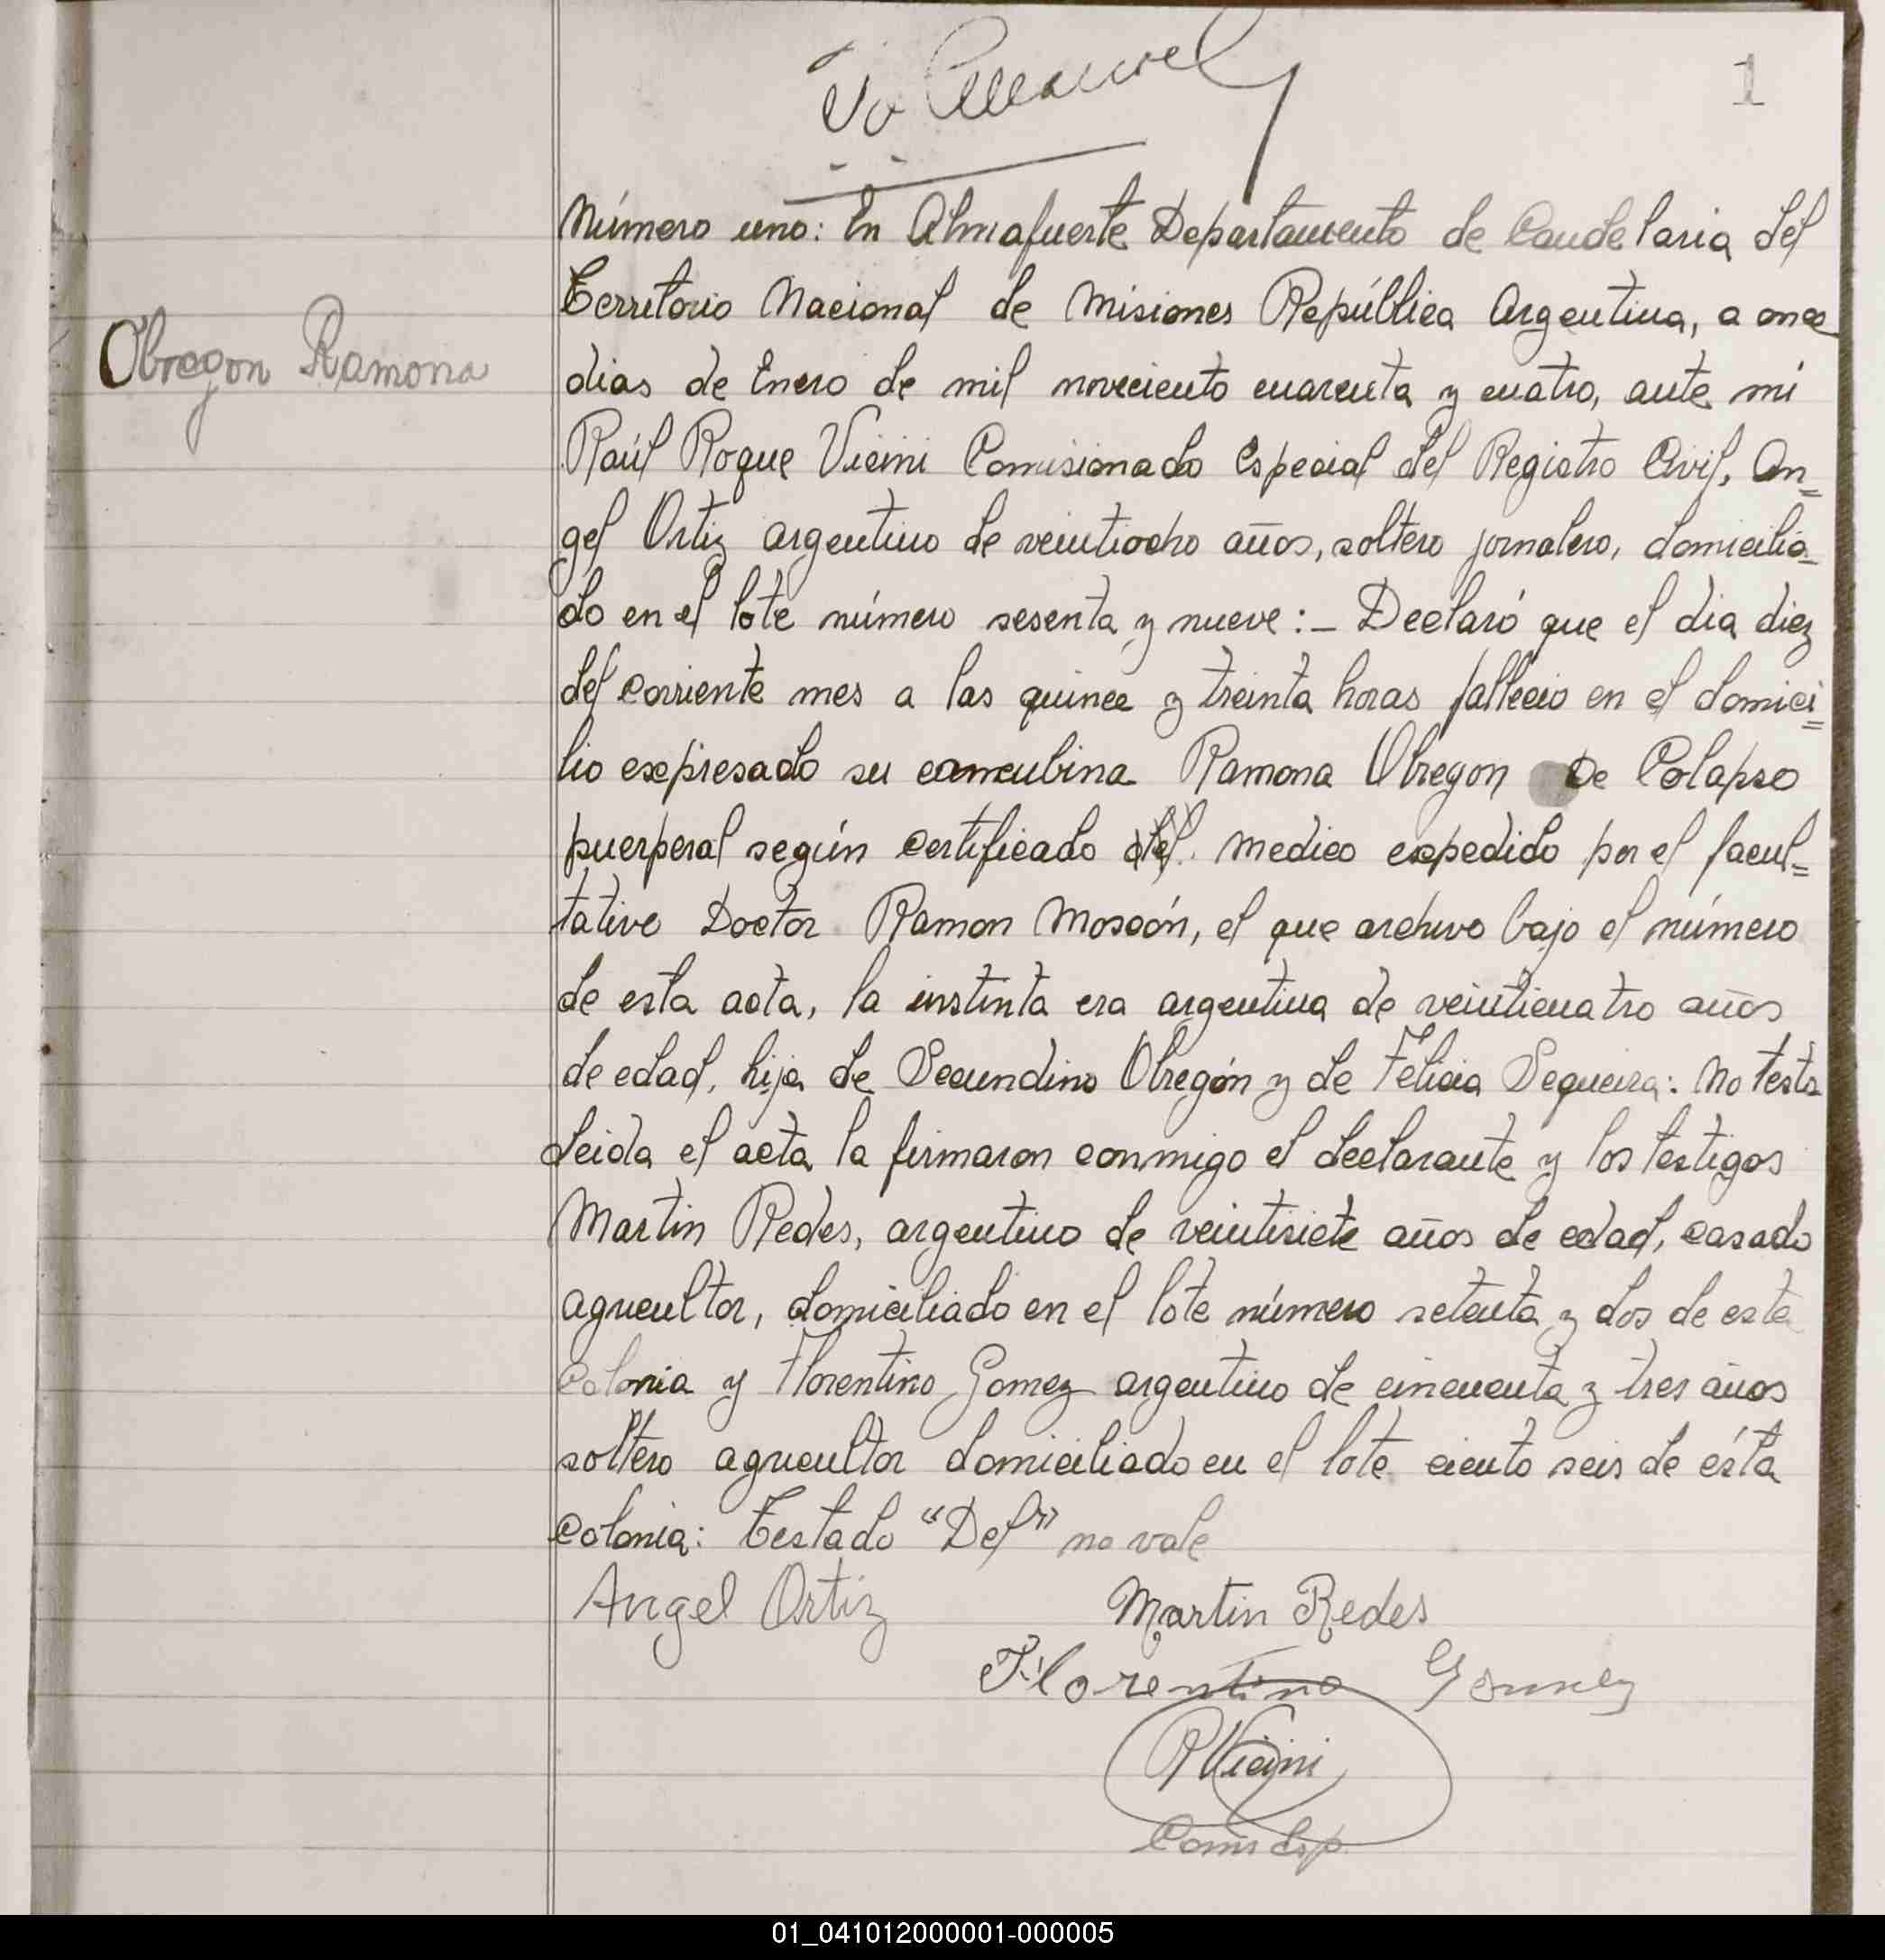 1
Número uno: En Almafuerte Departamento de Candelaria del
Territorio Nacional de Misiones República Argentina, a once
Obregon Ramona
dias de Enero de mil noveciento cuarenta y cuatro, ante mi
Raúl Roque Vicini Comisionado Especial del Registro Civil, An=
gel Ortiz argentino de veintiocho años, soltero jornalero, domicilia=
do en el lote número sesenta y nueve:_ Declaró que el dia diez
del corriente mes a las quince y treinta horas fallecio en el domici=
lio expresado su concubina Ramona Obregon De Colapso
puerperal según certificado del medico expedido por el facul=
tativo Doctor Ramon Moscón, el que archivo bajo el número
de esta acta, la instinta era argentina de veinticuatro años
de edad, hija de Secundino Obregón y de Felicia Sequeira: No testo
Leida el acta la firmaron conmigo el declarante y los testigos
Martin Redes, argentino de veintisiete años de edad, casado
agricultor, domiciliado en el lote número setenta y dos de esta
colonia y Florentino Gomez argentino de cincuenta y tres años
soltero agricultor domiciliado en el lote ciento seis de ésta
colonia: Testado "Del" no vale
Angel Ortiz Martin Redes
Florentino Gomez
RVicini
Comis Esp.
01_041012000001-000005